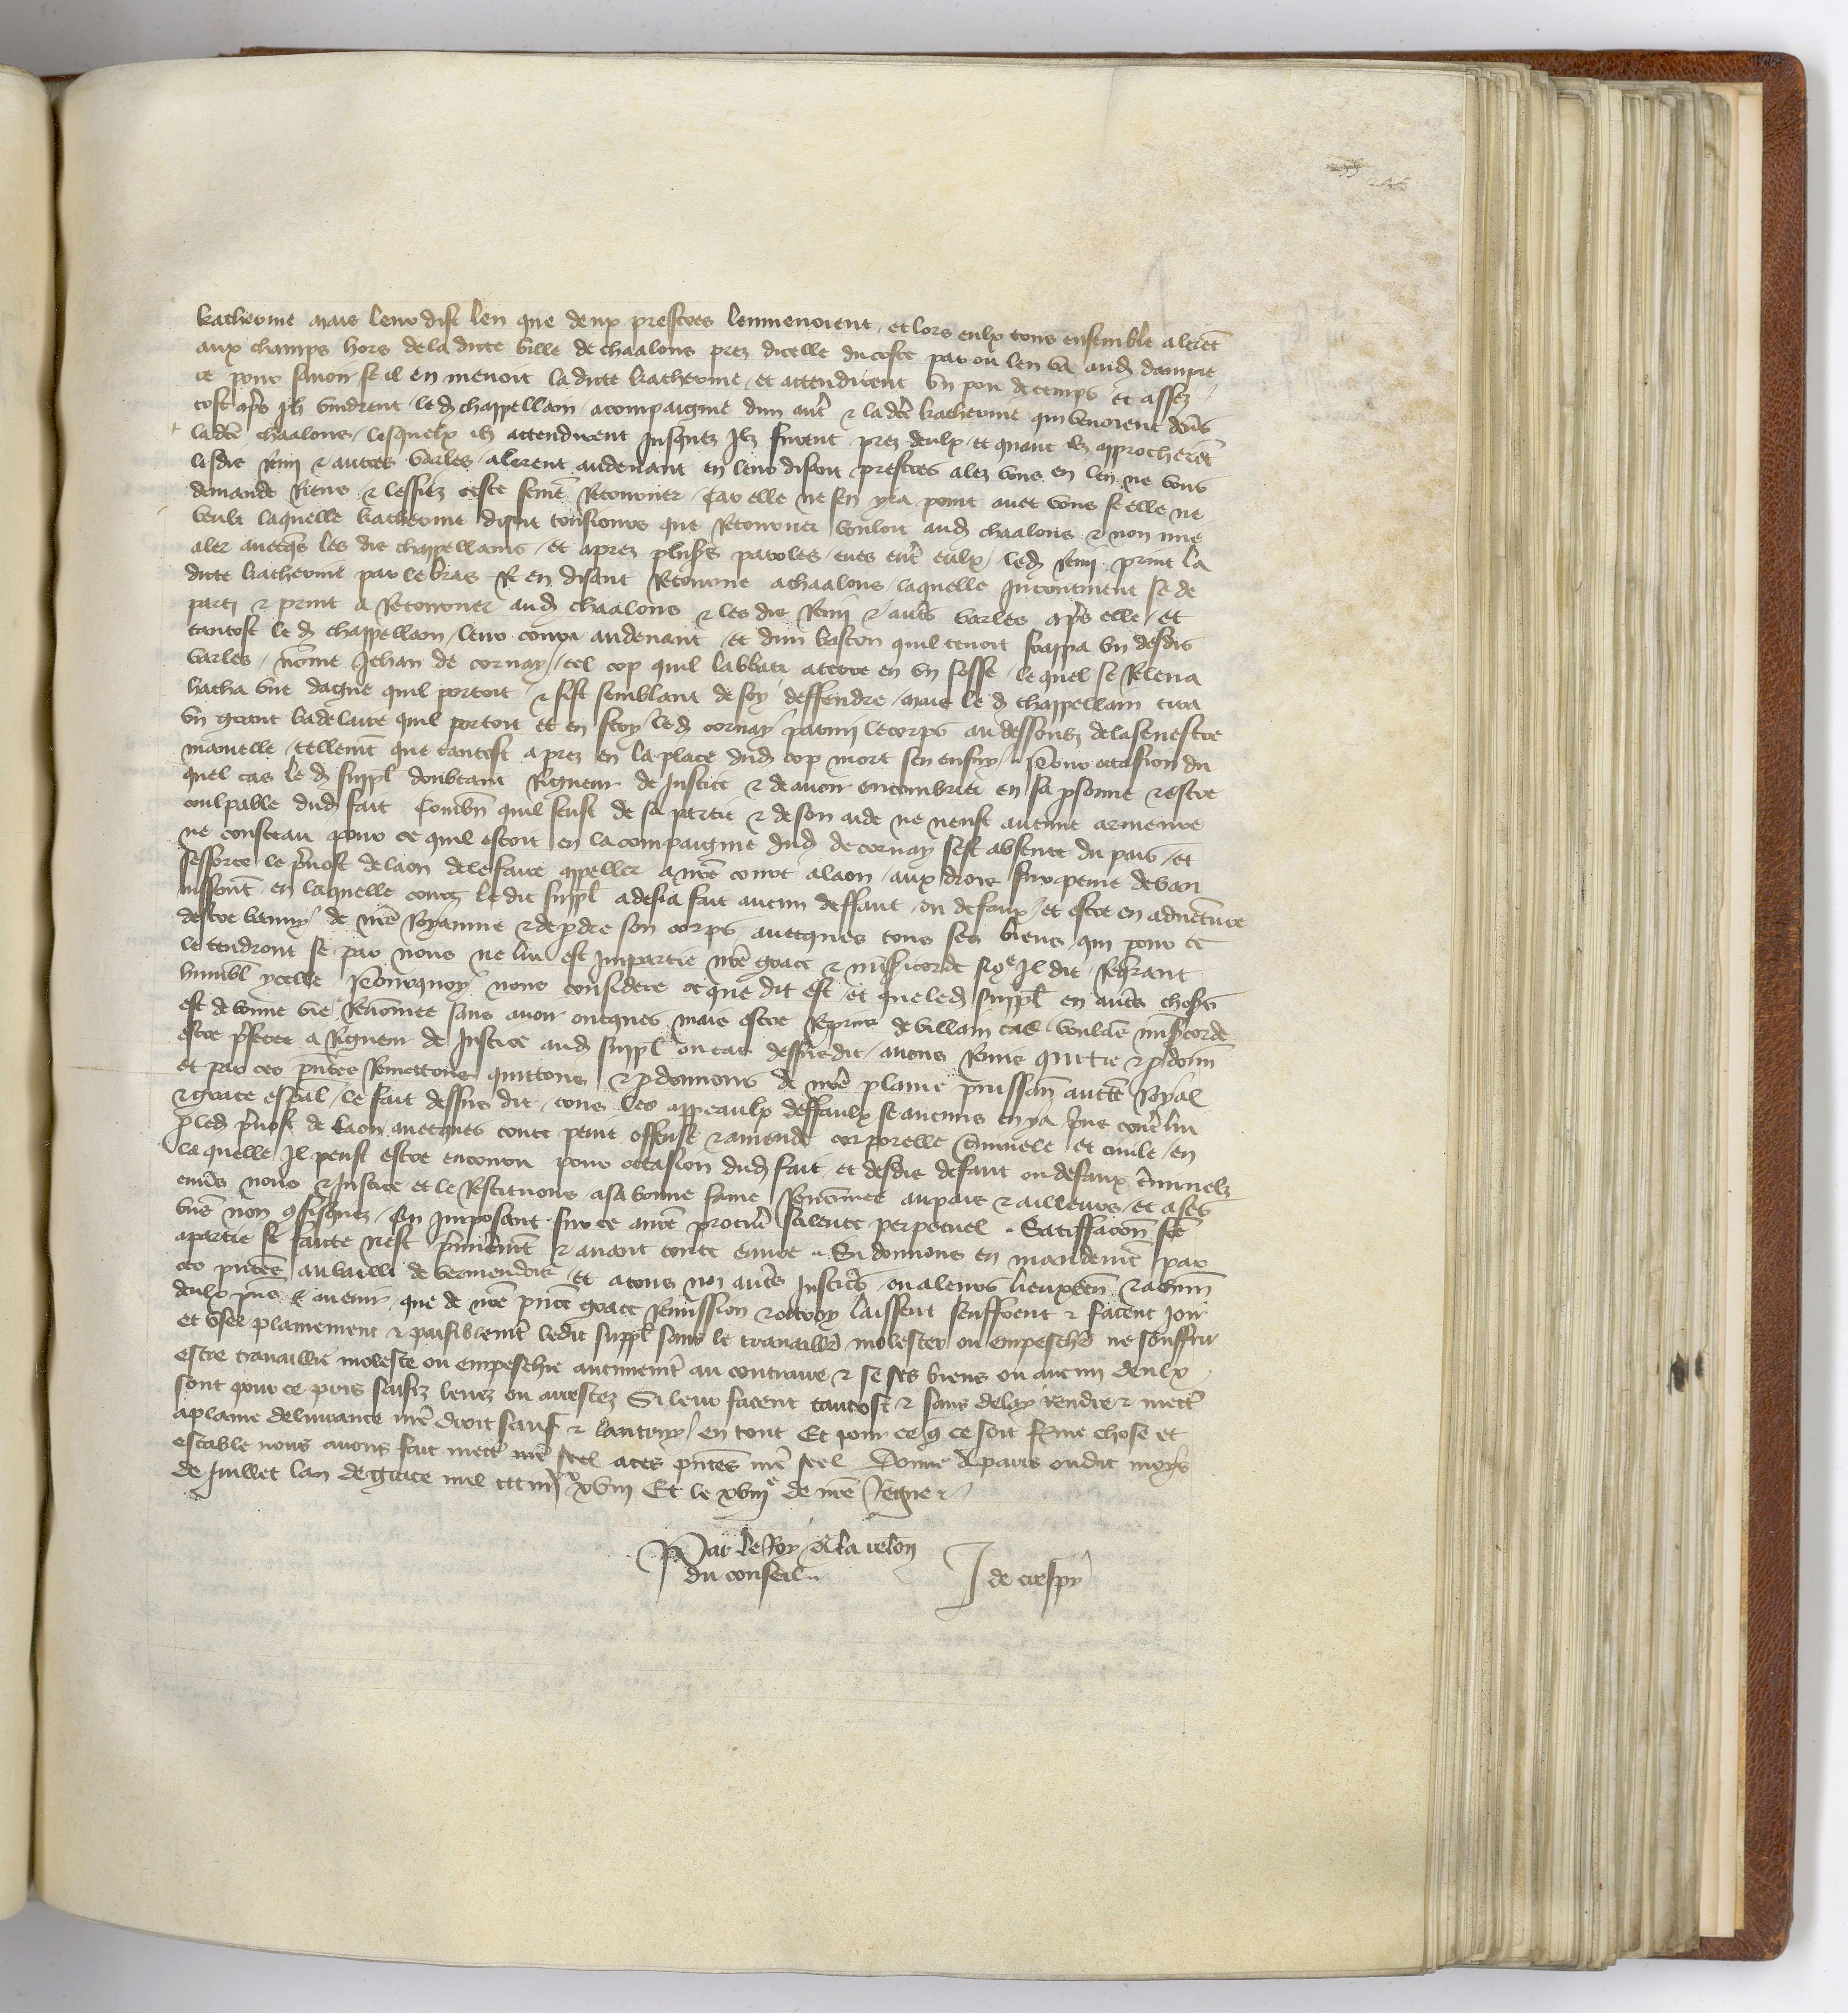 katherine mais leur dist len que deux prestres lenmenoient / et lors eulx tous ensemble alerēt
aux champs hors de la dicte ville de chaalons prez dicelle du coste par ou len va aud dampre
ce pour sauoir se il en menoit la dicte katherine / et attendirent vn pou de temps et assez
tost apr̄s ilz vindrent / le d chappellain / acompaignie dun aut̄ & la dc̄e katherine qui venoient deūs
la dc̄e chaalons / lesquelx ilz attendirent Jusques Ilz furent prez deulx / et quant ilz approcherēt
lesdis Remi & autres varles / alerent audeuant en leur disant prestres alez vous en len ne vous
demande Riens & lessiez ceste fem̄e Retourner / Car elle ne sen yra point auec vous se elle ne
veult laquelle katherine disoit tousiours que Retourner vouloit aud chaalons & non mie
aler auecq̄s les dis chappellains / et aprez plus̄rs paroles / eues ent̄ eulx / led Remi print la
dicte katherine par le bras & en disant Retourne a chaalons / laquelle Incontinent se de
parti & print a Retourner aud chaalons & les dis Remi & aut̄s varles apr̄s elle / et
tantost le d chappellain / leur couru audeuant / et dun baston quil tenoit frappa vn desdis
varles / nōme Jehan de cornay / tel cop quil labbati a terre en vn fosse / lequel se Releua
sacha vne dague quil portoit / & fist semblant de soy deffendre / mais le d chappellain tira
vn grant badelaire quil portoit et en fery led cornay parmi le corps au dessoubz de la senestre
mamelle / tellemt̄ que tantost aprez en la place dud cop mort sen ensuy / Pour occasion du
quel cas le d suppl̄ doubtant Rigueur de Justice & de auoir encombrier en sa p̄sonne & estre
coulpable dud fait Combn̄ quil feust de sa partie & de son aide ne neust aucune armeure
ne consteau pour ce quil estoit en la compaignie dud de cornay sest absente du pais / et
sefforce le p̄uost de laon de le faire appeller a nr̄e court a laon / aux drois sur peine de ban
nissemt̄ en laquelle court le dit suppl̄ a desia fait aucun deffaut / ou defaux / et estre en aduēture
destre banny de nr̄e Royaume & de p̄dre son corps auecques tous ses biens / qui pour ce
le tendront se par nous ne lui est Impartie nr̄e grace & mis̄icorde sic̄e Il dit / Req̄rant
humbl̄ ycelle Pourquoy nous considere ce que dit est / et que led suppl̄ en aut̄s choses
est de bonne vie Renōmee sans auoir oncques mais estre Reprins de villain cas / voulās mis̄icorde
estre p̄feree a Rigueur de Justice aud suppl̄ ou cas dessusdit / auons Remis quittie & p̄donn̄
et par ces pn̄tes Remettons quittons & p̄donnons de nr̄e plaine puissan̄ auctē Royal
& grace esp̄al / le fait dessus dit / tous les appeaulx deffaulx se aucuns en ya sur cont̄ lui
p̄ led p̄uost de laon auecques toute peine offense & amende corporelle criminele et ciuile / en
la quelle Il peust estre encouru pour occasion dud fait et desdis defaut ou defaux criminelz
enuers nous & Justice / et le Restituons a sa bonne fame / Renōmee au pais & ailleurs / et a ses
biēs non 9fisquez / En Imposant sur ce a nr̄e procur̄ scilence perpetuel / Satiffacōn fc̄e
a partie se faicte nest p̄mierement & auant toute euure / Si donnons en mandemt̄ par
ces pn̄tes au bailli de vermendois / et a tous noz aut̄s Justicīs / ou a leurs lieuxten̄ & a chūn
deulx pn̄s & auenir / que de nr̄e pn̄te grace Remission & ottroy laissent seuffrent & facent Joir
et vser plainement & paisiblemt̄ ledit suppl̄ sans le trauaillr̄ molester ou empeschr̄ ne souffrir
estre trauaillie moleste ou empeschie aucunemt̄ au contraire & se ses biens ou aucun deulx
sont pour ce pris saisiz leuez ou arrestez Si leur facent tantost & sans delay rendre & mett̄
a plaine deliurance nr̄e droit sauf & lautruy / en tout Et pour ce q̄ ce soit ferme chose et
estable nous auons fait mett̄ nr̄e seel a ces pn̄tes nr̄e seel Donne a paris ou dit moys
de Juillet lan de grace mil ccc iiijxx xviij Et le xviije de nr̄e Regne
Par le Roy a la relon
du conseil
J de crespy